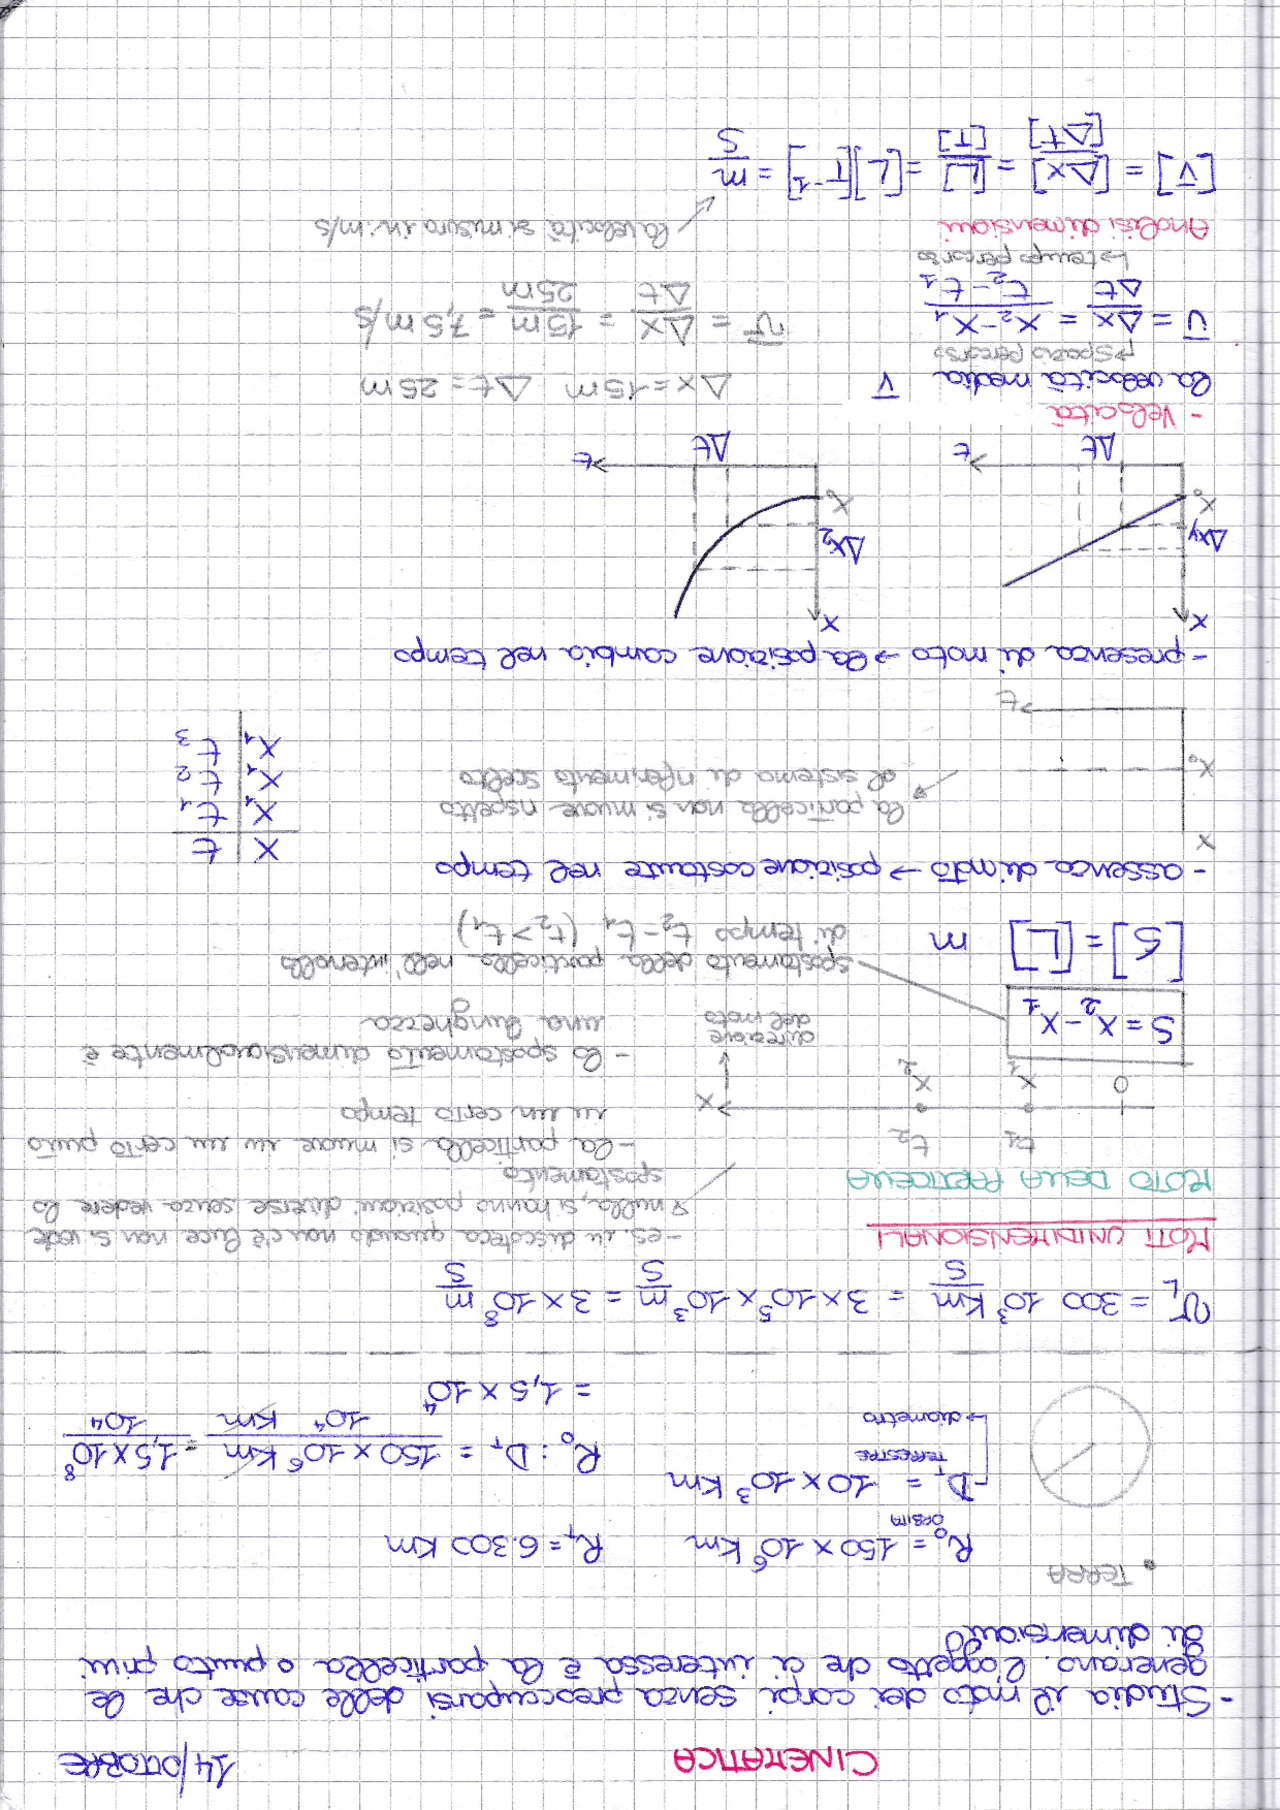 CINEMATICA
14/OTTOBRE
- Studia il moto dei corpi senza preoccuparsi delle cause che le
generano. L'oggetto che ci interessa è la particella o punto privi
di dimensioni
• TERRA
R₀ = 150 × 10⁶ Km
ORBITA
R_T = 6.300 Km
D_T = 10 × 10³ Km
TERRESTRE
↳ diametro
R₀ : D_T = 150 × 10⁶ Km / 10⁴ Km = 1,5 × 10⁸ / 10⁴
= 1,5 × 10⁴
v_L = 300 10³ Km/S = 3 × 10⁵ × 10³ m/S = 3 × 10⁸ m/S
MOTI UNIDIMENSIONALI
- es. in discoteca quando non c'è luce non si vede
nulla, si hanno posizioni diverse senza vedere lo
spostamento
MOTO DELLA PARTICELLA
- la particella si muove in un certo punto
in un certo tempo
t₁ t₂
0 x₁ x₂ x
direzione
del moto
- lo spostamento dimensionalmente è
una lunghezza
S = x₂ - x₁
spostamento della particella nell'intervallo
di tempo t₂ - t₁ (t₂ > t₁)
[S] = [L] m
- assenza di moto → posizione costante nel tempo
x
x₀
t
la particella non si muove rispetto
al sistema di riferimento scelto
x t
x₁ t₁
x₁ t₂
x₁ t₃
- presenza di moto → la posizione cambia nel tempo
x
Δxy
x₀
Δt
t
x
Δx₂
x₀
Δt
t
- Velocità
la velocità media v̅
Δx = 15 m Δt = 25 m
→ spazio percorso
v̅ = Δx/Δt = x₂ - x₁ / t₂ - t₁
↳ tempo percorso
v̅ = Δx/Δt = 15 m / 25 m = 7,5 m/s
Analisi dimensioni
la velocità si misura in: m/s
[v̅] = [Δx]/[Δt] = [L]/[T] = [L][T⁻¹] = m/S